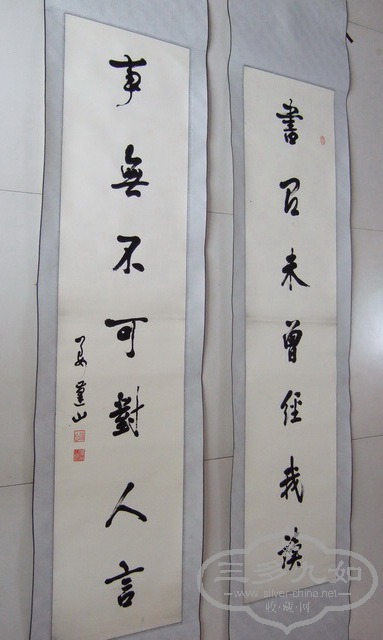 書有未曾經我讀
事無不可對人言
三多九如
www.silver-china.net
收·藏·网